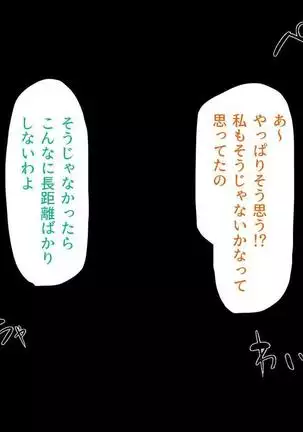 あ〜
やっぱりそう思う!?
私もそうじゃないかなって
思ってたの
そうじゃなかったら
こんなに長距離ばかり
しないわよ
わい
ャ